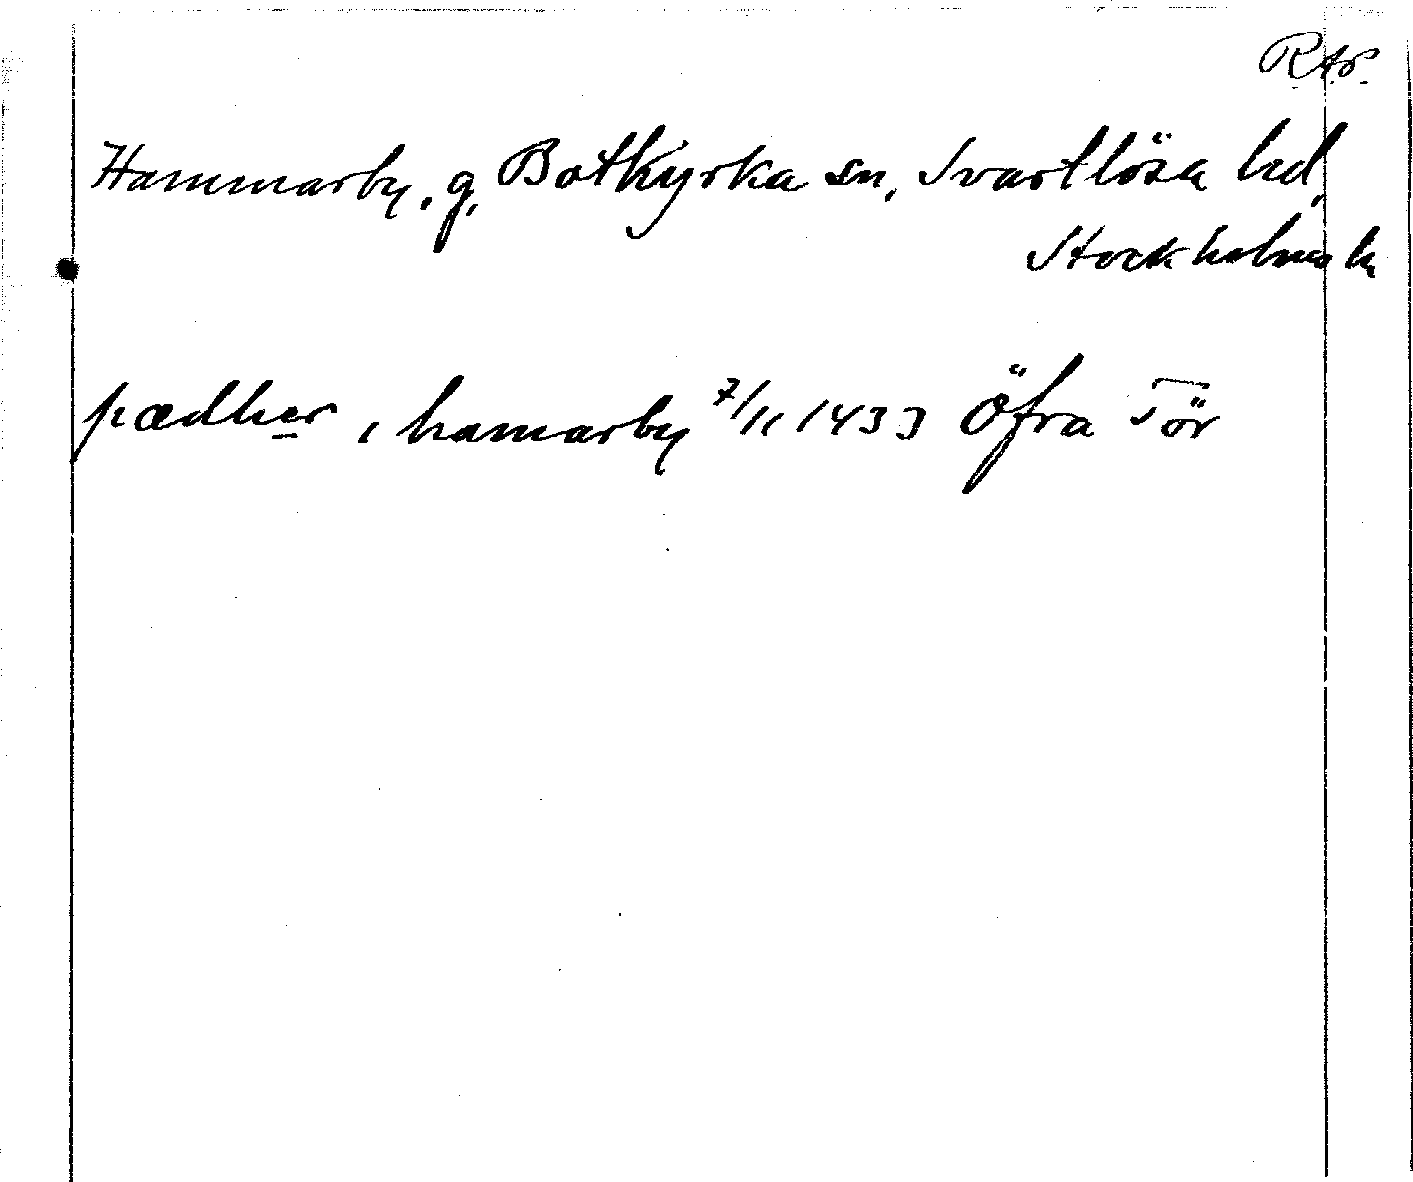 RAp.
Hammarby, g, Botkyrka sn, Svartlösa hd,
Stockholms l.
pædher i hamarby 7/11 1433 Öfra Tör